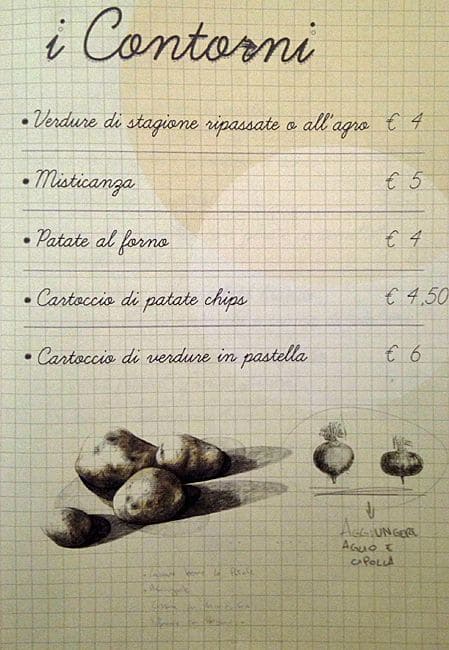 i Contorni
• Verdure di stagione ripassate o all'agro € 4
• Misticanza € 5
• Patate al forno € 4
• Cartoccio di patate chips € 4,50
• Cartoccio di verdure in pastella € 6
AGGIUNGERE
AGLIO E
CIPOLLA